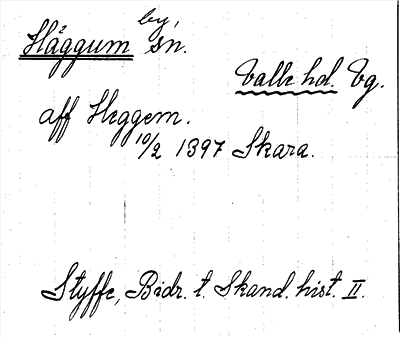 Häggum by, sn.
Valle hd. Vg.
aff Heggem.
10/2 1397 Skara.
Styffe, Bidr. t. Skand. hist. II.